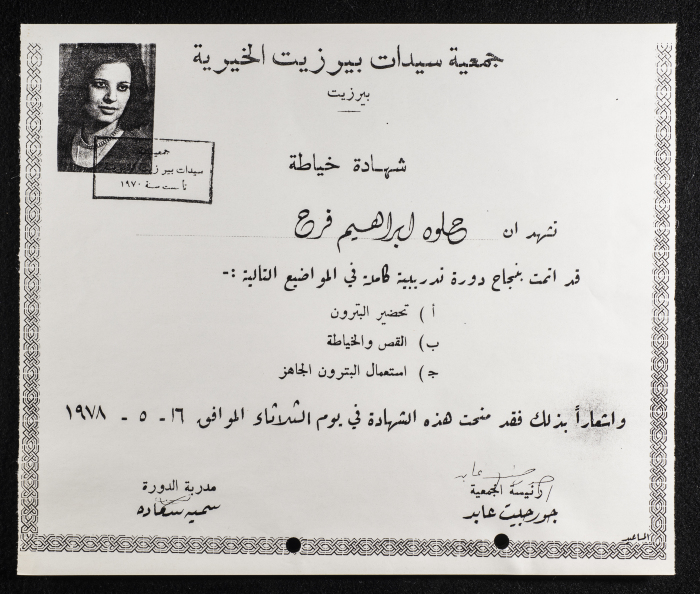 جمعية سيدات بيرزيت الخيرية
بيرزيت
جمعية
سيدات بيرزيت
تأسست سنة ١٩٧٠
شهادة خياطة
نشهد ان حلوه ابراهيم فرح
قد اتمت بنجاح دورة تدريبية كاملة في المواضيع التالية :-
أ ) تحضير البترون
ب) القص والخياطة
ج) استعمال البترون الجاهز
واشعاراً بذلك فقد منحت هذه الشهادة في يوم الثلاثاء الموافق ١٦ - ٥ - ١٩٧٨
مدربة الدورة
سميه سعاده
رئيسة الجمعية
جورجيت عابد